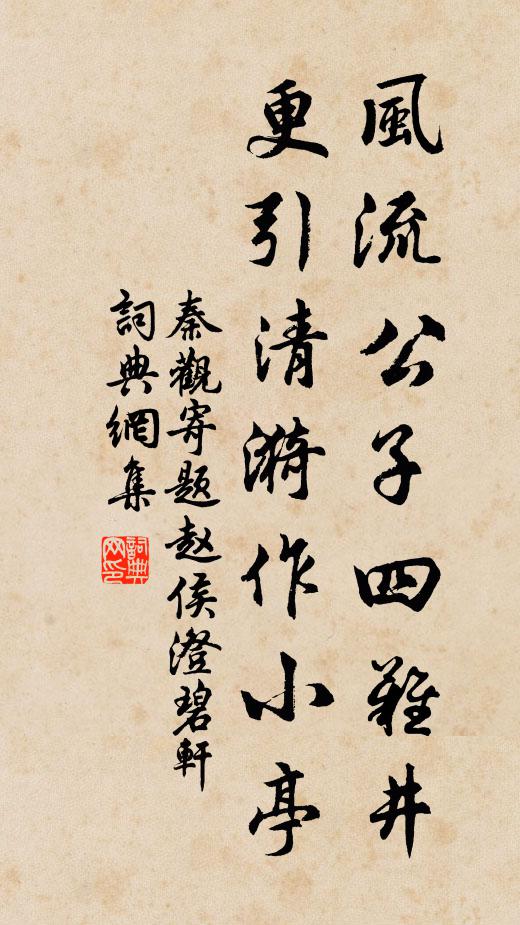 風流公子四難井
更引清漪作小亭
秦觀寄題赵侯澄碧軒
詞典網集
詞典网印